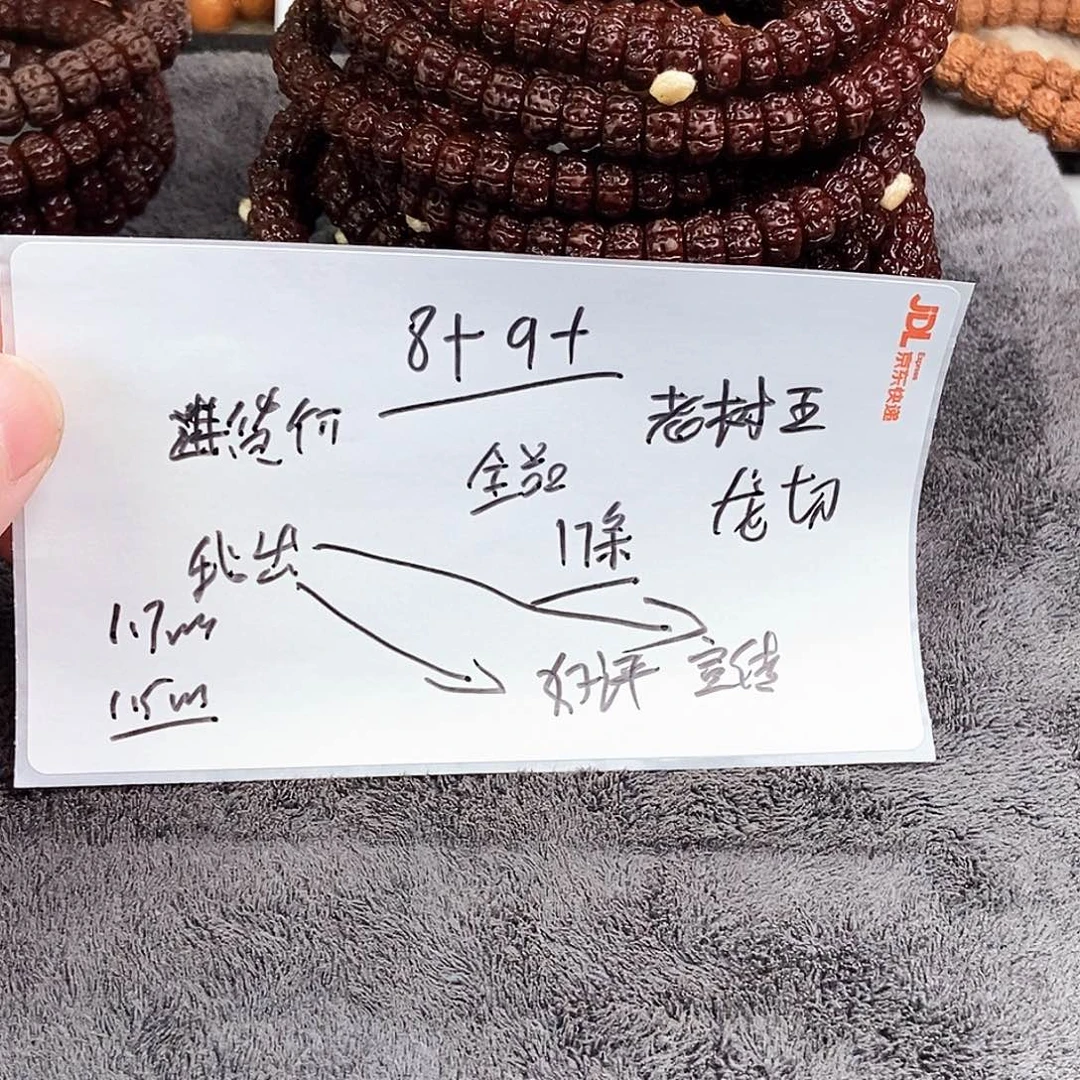 8+ 9+
进货价
老树王
全品
龙切
17条
出
1.7m
1.5m
好评 宣传
JDL Express
京东快递